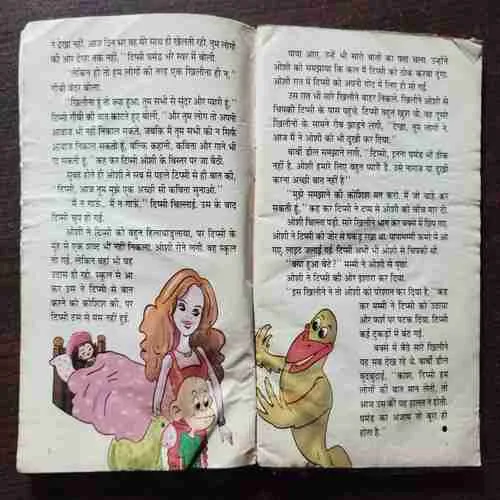 न देखा नहीं. आज दिन भर वह मेरे साथ ही खेलती रही. तुम लोगों
की ओर देखा तक नहीं,'' टिप्सी घमंड भरे स्वर में बोली.
''लेकिन हो तो हम लोगों की तरह एक खिलौना ही न,''
गौबी बंदर बोला.
''खिलौना हूं तो क्या हुआ, तुम सभी से सुंदर और प्यारी हूं,''
टिप्सी गौबी की बात काटते हुए बोली, ''और तुम लोग तो अपनी
आवाज भी नहीं निकाल सकते, जबकि मैं तुम सभी की न सिर्फ
आवाज निकाल सकती हूं, बल्कि कहानी, कविता और गाने भी
गा सकती हूं,'' कह कर टिप्सी ओशी के बिस्तर पर जा बैठी.
सुबह होते ही ओशी ने सब से पहले टिप्सी से ही बात की,
''टिप्सी, आज तुम मुझे एक अच्छी सी कविता सुनाओ.''
''मैं न गाऊं... मैं न गाऊं,'' टिप्सी चिल्लाई. उस के बाद
टिप्सी चुप हो गई.
ओशी ने टिप्सी को बहुत हिलायाडुलाया, पर टिप्सी के
मुंह से एक शब्द भी नहीं निकला. ओशी रोने लगी. वह स्कूल
तो गई, लेकिन वहां भी वह
उदास ही रही. स्कूल से आ
कर उस ने टिप्सी से बात
करने की कोशिश की, पर
टिप्सी टस से मस नहीं हुई.
पापा आए, उन्हें भी सारी बातों का पता चला. उन्होंने
ओशी को समझाया कि कल मैं टिप्सी को ठीक करवा दूंगा.
ओशी रात में टिप्सी को अपनी गोद में लिए ही सो गई.
उस रात भी सारे खिलौने बाहर निकले. खिलौने ओशी से
चिपकी टिप्सी के पास पहुंचे. टिप्सी बहुत खुश थी. वह दूसरे
खिलौनों के सामने रोब झाड़ने लगी, ''देखा, तुम लोगों ने.
आज मैं ने ओशी को भी दुखी कर दिया.''
बार्बी डौल समझाने लगी, ''टिप्सी, इतना घमंड भी ठीक
नहीं है. ओशी हमारे लिए बहुत प्यारी है. उसे नाराज या दुखी
करना अच्छी बात नहीं है.''
''मुझे समझाने की कोशिश मत करो. मैं जो चाहे कर
सकती हूं,'' कह कर टिप्सी ने टप्प से ओशी को चोंच मार दी.
ओशी चिल्ला पड़ी. सारे खिलौने भाग कर बक्से में छिप गए.
ओशी ने टिप्सी को जोर से पकड़ रखा था. पापामम्मी कमरे में आ
गए. लाइट जलाई गई. टिप्सी अभी भी ओशी से चिपकी थी.
''क्या हुआ बेटे?'' मम्मी ने ओशी से पूछा.
ओशी ने टिप्सी की ओर इशारा कर दिया.
''इस खिलौने ने तो ओशी को परेशान कर दिया है,'' कह
कर मम्मी ने टिप्सी को उठाया
और फर्श पर पटक दिया. टिप्सी
कई टुकड़ों में बंट गई.
बक्से में बैठे सारे खिलौने
यह सब देख रहे थे. बार्बी डौल
बुदबुदाई, ''काश, टिप्सी हम
लोगों की बात मान लेती, तो
आज उस की यह हालत न होती.
घमंड का अंजाम तो बुरा ही
होता है.''